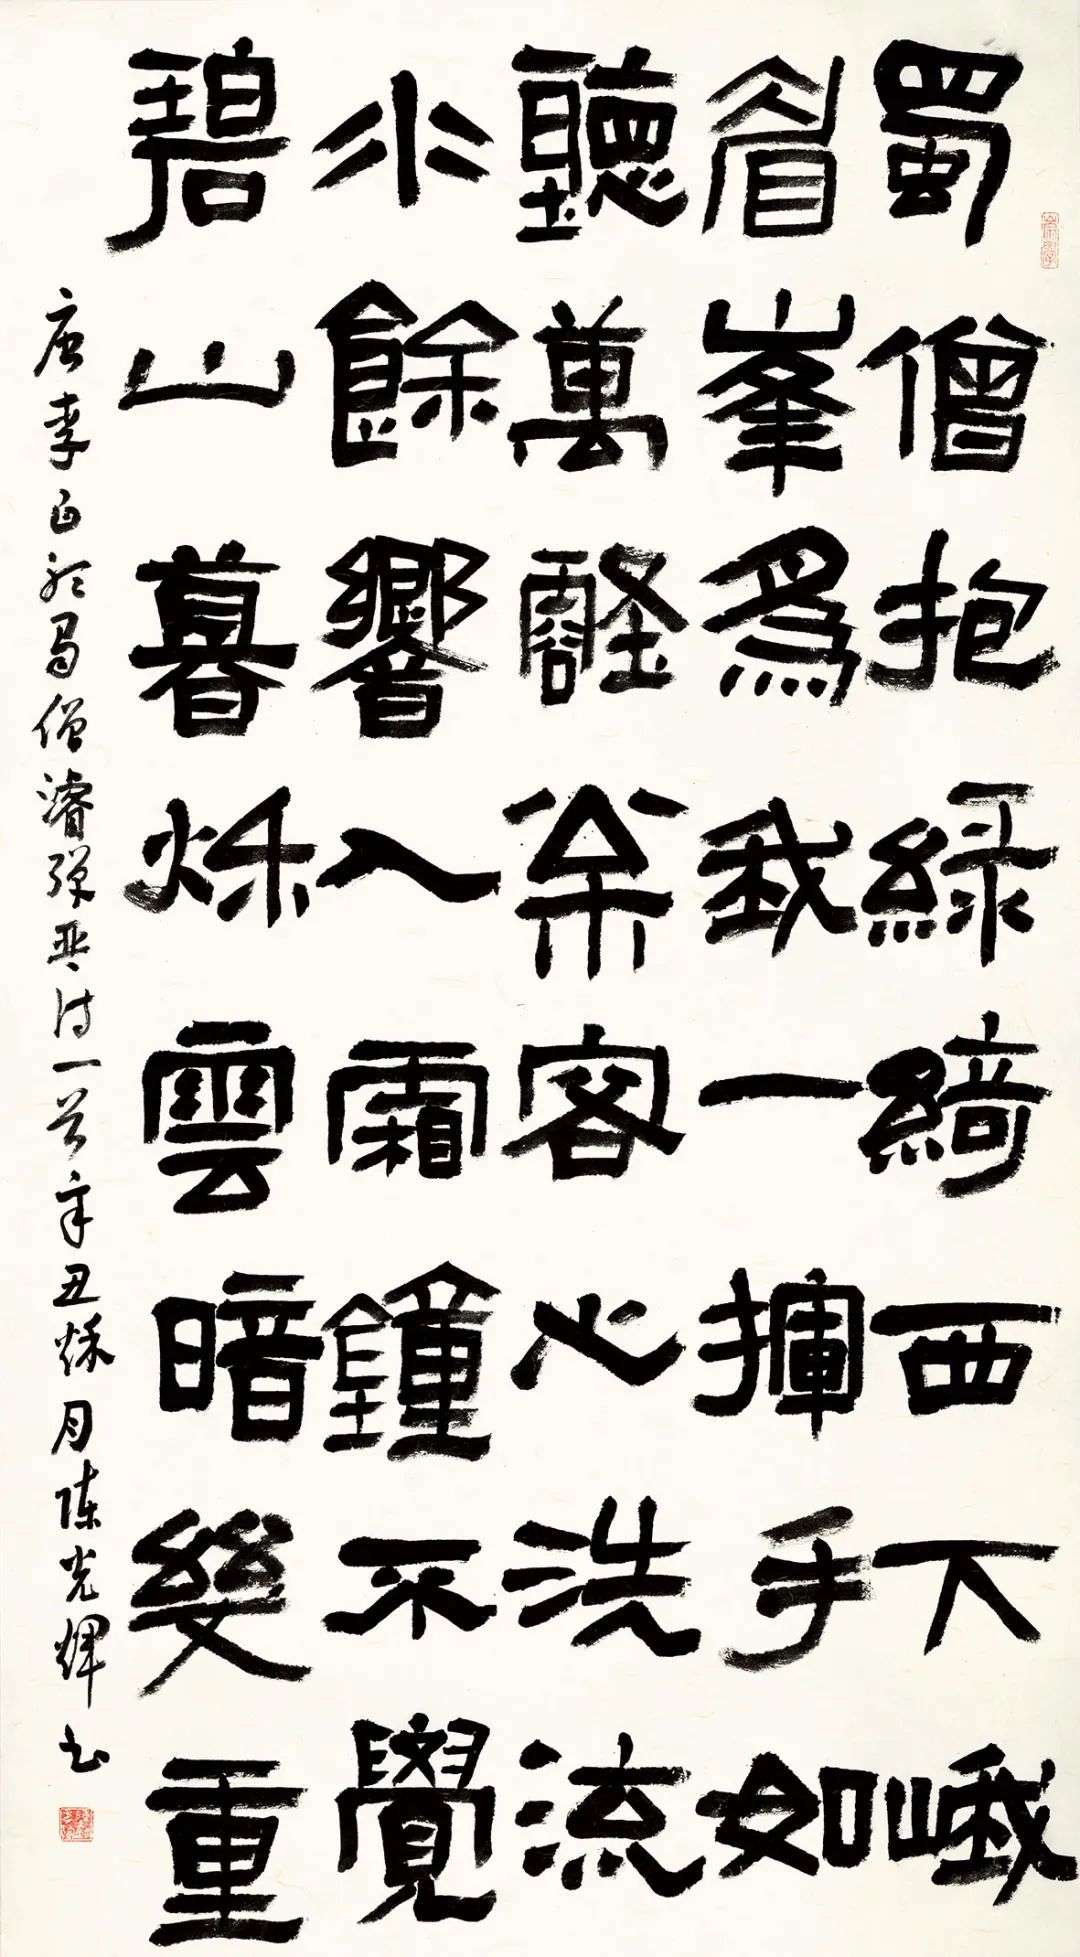 蜀僧抱綠綺西下峨
眉峯爲我一揮手如
聽萬壑枀客心洗流
水餘響入霜鐘不覺
碧山暮秌雲暗幾重
唐李白聽蜀僧濬彈琴詩一首辛丑秌月陳光輝书